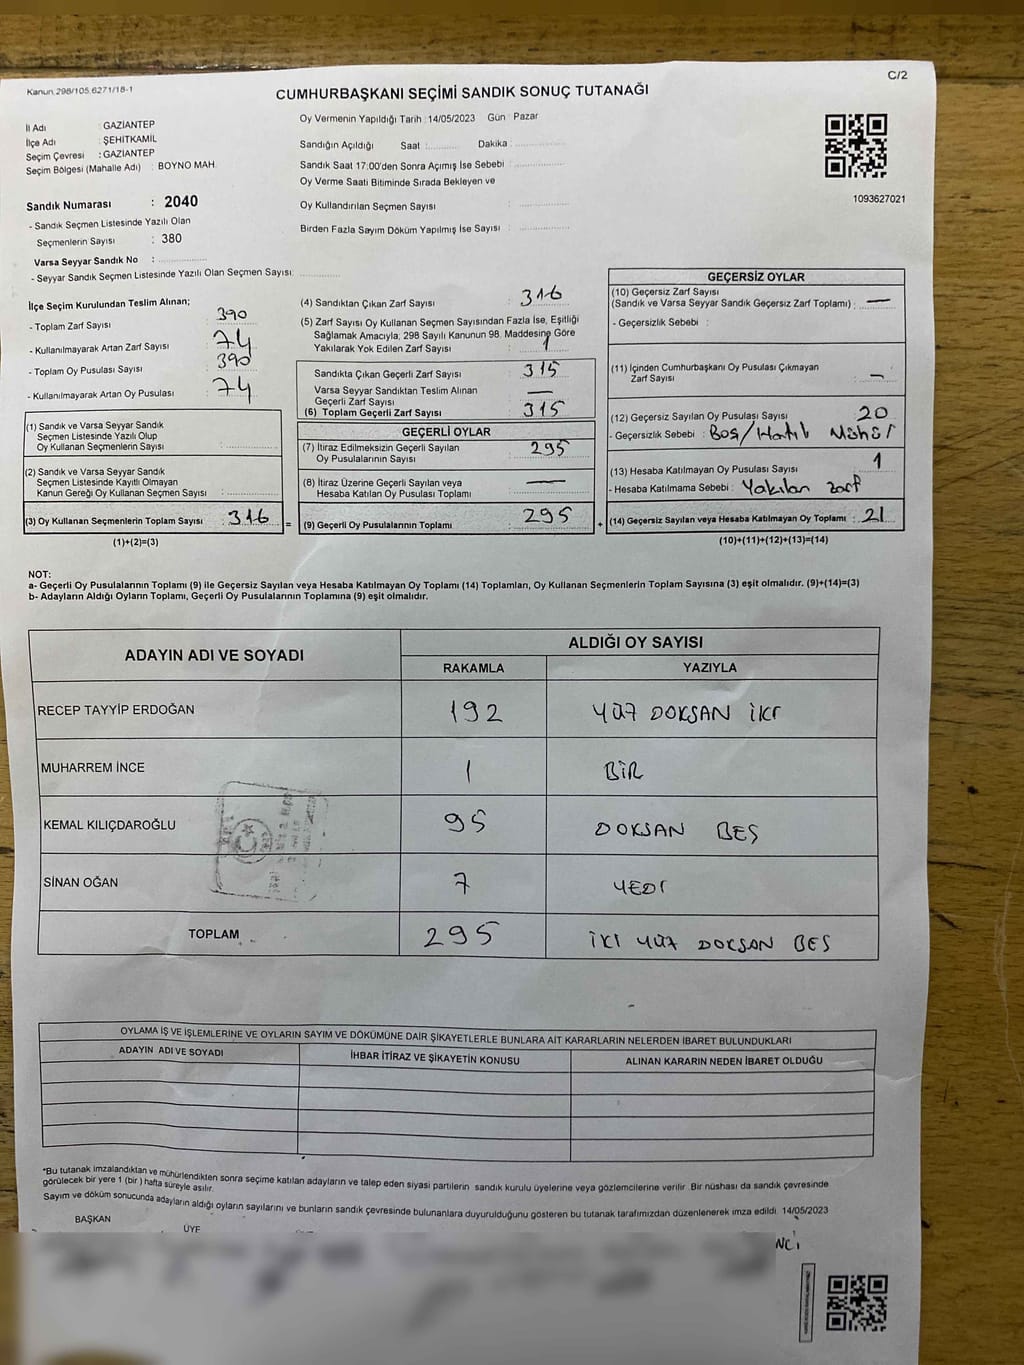 Kanun 298/105 6271/18-1
C/2
CUMHURBAŞKANI SEÇİMİ SANDIK SONUÇ TUTANAĞI
İl Adı : GAZİANTEP
İlçe Adı : ŞEHİTKAMİL
Seçim Çevresi : GAZİANTEP
Seçim Bölgesi (Mahalle Adı) : BOYNO MAH.
Oy Vermenin Yapıldığı Tarih : 14/05/2023 Gün : Pazar
Sandığın Açıldığı Saat : Dakika :
Sandık Saat 17:00'den Sonra Açımış İse Sebebi :
Oy Verme Saati Bitiminde Sırada Bekleyen ve
Oy Kullandırılan Seçmen Sayısı :
Birden Fazla Sayım Döküm Yapılmış İse Sayısı :
1093627021
Sandık Numarası : 2040
- Sandık Seçmen Listesinde Yazılı Olan
Seçmenlerin Sayısı : 380
Varsa Seyyar Sandık No :
- Seyyar Sandık Seçmen Listesinde Yazılı Olan Seçmen Sayısı:
İlçe Seçim Kurulundan Teslim Alınan;
- Toplam Zarf Sayısı : 390
- Kullanılmayarak Artan Zarf Sayısı : 74
- Toplam Oy Pusulası Sayısı : 390
- Kullanılmayarak Artan Oy Pusulası : 74
(1) Sandık ve Varsa Seyyar Sandık
Seçmen Listesinde Yazılı Olup
Oy Kullanan Seçmenlerin Sayısı :
(2) Sandık ve Varsa Seyyar Sandık
Seçmen Listesinde Kayıtlı Olmayan
Kanun Gereği Oy Kullanan Seçmen Sayısı :
(3) Oy Kullanan Seçmenlerin Toplam Sayısı : 316 =
(1)+(2)=(3)
(4) Sandıktan Çıkan Zarf Sayısı : 316
(5) Zarf Sayısı Oy Kullanan Seçmen Sayısından Fazla İse, Eşitliği
Sağlamak Amacıyla, 298 Sayılı Kanunun 98. Maddesine Göre
Yakılarak Yok Edilen Zarf Sayısı : 1
Sandıkta Çıkan Geçerli Zarf Sayısı : 315
Varsa Seyyar Sandıktan Teslim Alınan
Geçerli Zarf Sayısı : —
(6) Toplam Geçerli Zarf Sayısı : 315
GEÇERLİ OYLAR
(7) İtiraz Edilmeksizin Geçerli Sayılan
Oy Pusulalarının Sayısı : 295
(8) İtiraz Üzerine Geçerli Sayılan veya
Hesaba Katılan Oy Pusulası Toplamı : —
(9) Geçerli Oy Pusulalarının Toplamı : 295 +
GEÇERSİZ OYLAR
(10) Geçersiz Zarf Sayısı
(Sandık ve Varsa Seyyar Sandık Geçersiz Zarf Toplamı) : —
- Geçersizlik Sebebi :
(11) İçinden Cumhurbaşkanı Oy Pusulası Çıkmayan
Zarf Sayısı : —
(12) Geçersiz Sayılan Oy Pusulası Sayısı : 20
- Geçersizlik Sebebi : Boş/Hatalı Mühür
(13) Hesaba Katılmayan Oy Pusulası Sayısı : 1
- Hesaba Katılmama Sebebi : Yakılan zarf
(14) Geçersiz Sayılan veya Hesaba Katılmayan Oy Toplamı : 21
(10)+(11)+(12)+(13)=(14)
NOT:
a- Geçerli Oy Pusulalarının Toplamı (9) ile Geçersiz Sayılan veya Hesaba Katılmayan Oy Toplamı (14) Toplamları, Oy Kullanan Seçmenlerin Toplam Sayısına (3) eşit olmalıdır. (9)+(14)=(3)
b- Adayların Aldığı Oyların Toplamı, Geçerli Oy Pusulalarının Toplamına (9) eşit olmalıdır.
ADAYIN ADI VE SOYADI
ALDIĞI OY SAYISI
RAKAMLA YAZIYLA
RECEP TAYYİP ERDOĞAN 192 YÜZ DOKSAN İKİ
MUHARREM İNCE 1 BİR
KEMAL KILIÇDAROĞLU 95 DOKSAN BEŞ
SİNAN OĞAN 7 YEDİ
TOPLAM 295 İKİ YÜZ DOKSAN BEŞ
OYLAMA İŞ VE İŞLEMLERİNE VE OYLARIN SAYIM VE DÖKÜMÜNE DAİR ŞİKAYETLERLE BUNLARA AİT KARARLARIN NELERDEN İBARET BULUNDUKLARI
ADAYIN ADI VE SOYADI İHBAR İTİRAZ VE ŞİKAYETİN KONUSU ALINAN KARARIN NEDEN İBARET OLDUĞU
*Bu tutanak imzalandıktan ve mühürlendikten sonra seçime katılan adayların ve talep eden siyasi partilerin sandık kurulu üyelerine veya gözlemcilerine verilir. Bir nüshası da sandık çevresinde
görülecek bir yere 1 (bir) hafta süreyle asılır.
Sayım ve döküm sonucunda adayların aldığı oyların sayılarını ve bunların sandık çevresinde bulunanlara duyurulduğunu gösteren bu tutanak tarafımızdan düzenlenerek imza edildi. 14/05/2023
BAŞKAN
ÜYE